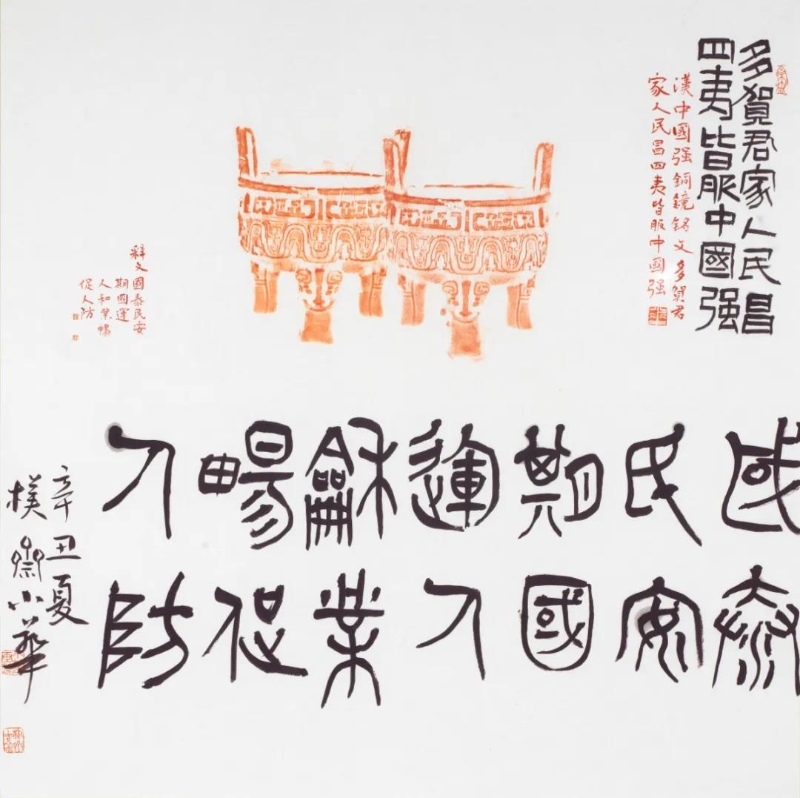 多賀君家人民昌
四夷皆服中國强
漢中國强銅鏡銘文多賀君
家人民昌四夷皆服中國强
釋文國泰民安
期國運
人和業暢
促人防
國泰
民安
期國
運人
龢業
暢促
人防
辛丑夏
樸齋小華